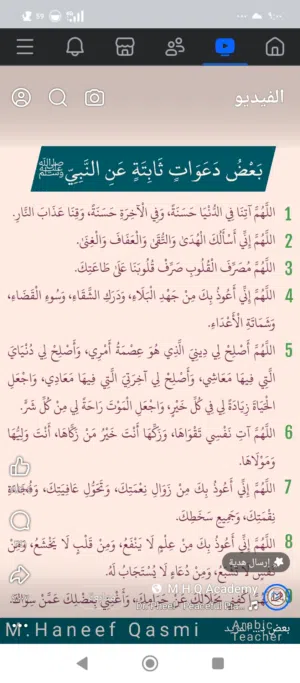 59
9:00
الفيديو
بَعْضُ دَعَوَاتٍ ثَابِتَةٍ عَنِ النَّبِيِّ ﷺ
1 اللَّهُمَّ آتِنَا فِي الدُّنْيَا حَسَنَةً، وَفِي الْآخِرَةِ حَسَنَةً، وَقِنَا عَذَابَ النَّارِ.
2 اللَّهُمَّ إِنِّي أَسْأَلُكَ الْهُدَىٰ وَالتُّقَىٰ وَالْعَفَافَ وَالْغِنَىٰ.
3 اللَّهُمَّ مُصَرِّفَ الْقُلُوبِ صَرِّفْ قُلُوبَنَا عَلَىٰ طَاعَتِكَ.
4 اللَّهُمَّ إِنِّي أَعُوذُ بِكَ مِنْ جَهْدِ الْبَلَاءِ، وَدَرَكِ الشَّقَاءِ، وَسُوءِ الْقَضَاءِ،
وَشَمَاتَةِ الْأَعْدَاءِ.
5 اللَّهُمَّ أَصْلِحْ لِي دِينِيَ الَّذِي هُوَ عِصْمَةُ أَمْرِي، وَأَصْلِحْ لِي دُنْيَايَ
الَّتِي فِيهَا مَعَاشِي، وَأَصْلِحْ لِي آخِرَتِيَ الَّتِي فِيهَا مَعَادِي، وَاجْعَلِ
الْحَيَاةَ زِيَادَةً لِي فِي كُلِّ خَيْرٍ، وَاجْعَلِ الْمَوْتَ رَاحَةً لِي مِنْ كُلِّ شَرٍّ.
6 اللَّهُمَّ آتِ نَفْسِي تَقْوَاهَا، وَزَكِّهَا أَنْتَ خَيْرُ مَنْ زَكَّاهَا، أَنْتَ وَلِيُّهَا
وَمَوْلَاهَا.
7 اللَّهُمَّ إِنِّي أَعُوذُ بِكَ مِنْ زَوَالِ نِعْمَتِكَ، وَتَحَوُّلِ عَافِيَتِكَ، وَفُجَاءَةِ
نِقْمَتِكَ، وَجَمِيعِ سَخَطِكَ.
8 اللَّهُمَّ إِنِّي أَعُوذُ بِكَ مِنْ عِلْمٍ لَا يَنْفَعُ، وَمِنْ قَلْبٍ لَا يَخْشَعُ، وَمِنْ
نَفْسٍ لَا تَشْبَعُ، وَمِنْ دُعَاءٍ لَا يُسْتَجَابُ لَهُ.
إرسال هدية
بِحَلَالِكَ عَنْ حَرَامِكَ، وَأَغْنِنِي بِفَضْلِكَ عَمَّنْ سِوَاكَ
M H Q Academy
Peaceful
M.Haneef Qasmi
Arabic
Teacher
بعض